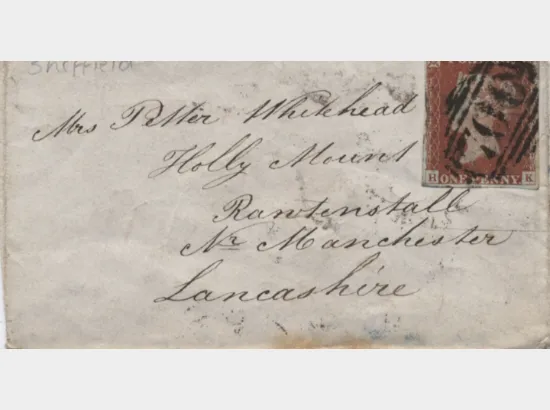 Sheffield
Mrs Petter Whitehead
Holly Mount
Rawtenstall
Nr Manchester
Lancashire
H ONE PENNY K